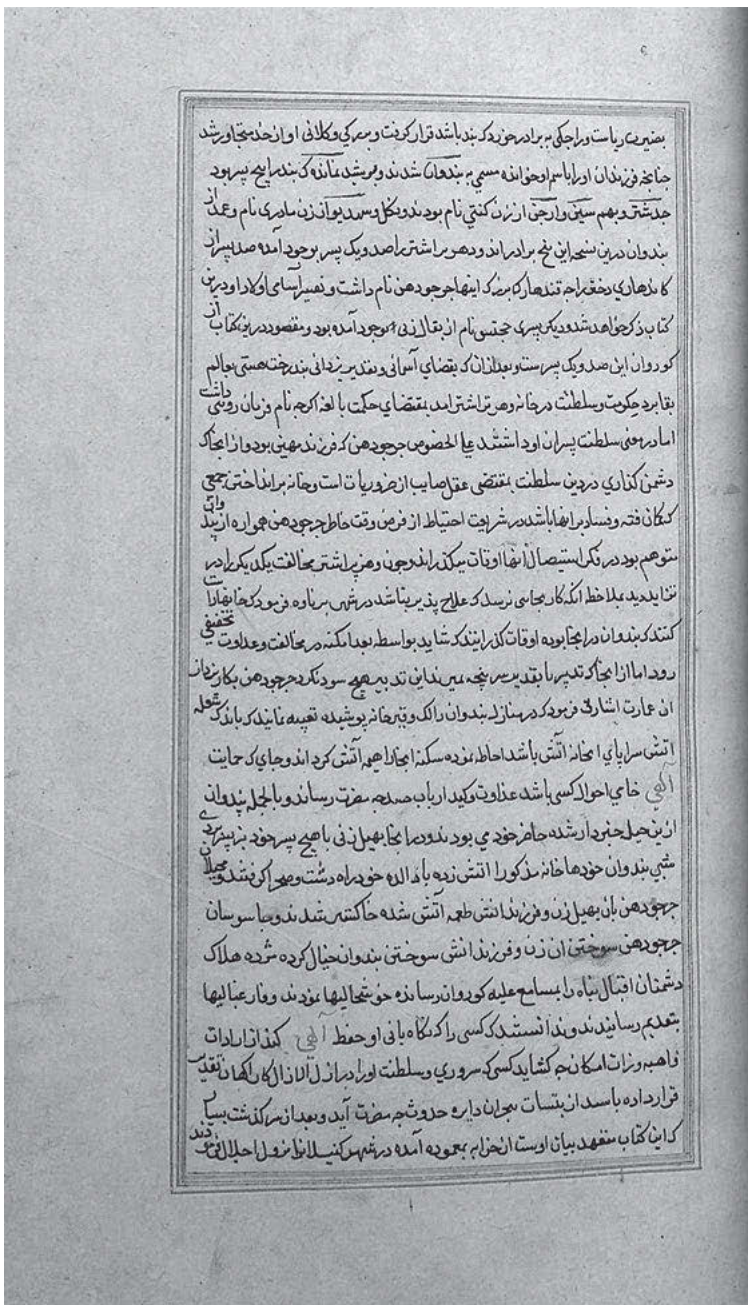 ریاست وراجکی به برادر خورد که پند باشد قرار گرفت و بزرکی وکلانی او از حد متجاور شد
چنانچه فرزندان اورا باسم او خوانده مسمی به پندوان شدند و پوشید نمانده که پند را پنج پسر بود
جدشتر و بهم سین وارجن از زن کنتی نام بودند و نکل و سهدیو از زن مادری نام و از
پندوان درین نسخه این پنج برادراند و دهریراشتر را صد و یک پسر بوجود آمده صد پسر از
کاندهاری دختر راجه قندهار که بزرک اینها جرجودهن نام داشت و اسامی اولاد او درین
کتاب ذکر خواهد شد و دیکر پسری ججتس نام از بقال زنی بوجود آمده بود و مقصود درین کتاب از
کوروان این صد و یک پسرست و بعد ازان که بقضای آسمانی و تقدیر یزدانی پند رخت هستی بعالم
بقا برد حکومت و سلطنت در خانه دهریراشتر امد بمقتضای حکمت بالغه اکرچه نام فرمان روئی داشت
اما در معنی سلطنت پسران او داشتند علی الخصوص جرجودهن که فرزند مهین بود و از انجا که
دشمن کذاری در دین سلطنت بمقتضی عقل صایب از ضروریات است و خانه برانداختن جمعی
که کمان فتنه و فساد برانها باشد در شریعت احتیاط از فرض وقت خاطر جرجودهن همواره از پندوان
متوهم بود در فکر استیصال آنها اوقات میکذراند و چون دهریراشتر مخالفت یکدیکر را در
تزاید دید بملاحظه انکه کار بجائی نرسد که علاج پذیر نباشد در شهر برناوه فرمود که خانهارا
کنند که پندوان در انجا بوده اوقات کذرانند که شاید بواسطه بعد امکنه در مخالفت و عداوت تخفیفی
رود اما از انجا که تدبیر با تقدیر سر پنجه نمیزند این تدبیر هیچ سود نکرد جرجودهن بکار پردازان
ان عمارت اشارتی فرمود که در منازل پندوان رالک و قیر خانه پوشیده تعبیه نمایند که باندک شعله
اتش سراپای انخانه اتش باشد احاطه نموده سکنه انجارا همه آتش کرداند و جای که حمایت
آلهی حامی احوال کسی باشد عداوت و کید ارباب حسد چه مضرت رساند و بالجمله پندوان
ازین حیل خبردار شده حاضر خود می بودند و در انجا بهیل زنی با پنج پسر خود بسر میبرد
شبی پندوان خودها خانه مذکور را اتش زده با والده خود راه دشت و صحرا کرفتند و محیلان
جرجودهن بان بهیل زن و فرزندانش طعمه آتش شده خاکستر شدند و جاسوسان
جرجودهن سوختن ان زن و فرزندانش سوختن پندوان خیال کرده مژده هلاک
دشمنان اقبال پناه را بمسامع علیه کوروان رسانده خوشحالیها نمودند
بتقدیم رسانیدند و ندانستند که کسی را که نکاه بانی او حفظ آلهی کند از ارادات
چه کشاید کسی که سروری و سلطنت اورا در ازل الازال کارآکهان تقدیر
قرار داده باشند از دایره حدوث چه مضرت آید و بعد از سرکذشت بسیار
که این کتاب متعهد بیان اوست از خرابه بمعموده آمده در شهر کنپلا نزول اجلال فرمودند